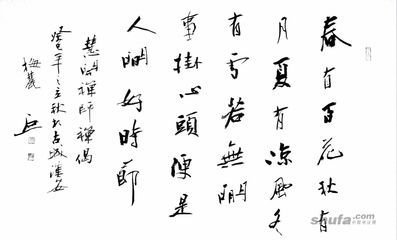 春有百花秋有
月夏有涼風冬
有雪若無閑
事掛心頭便是
人間好時節
慧開禪師禪偈
年之立秋於古城
梅
shufa.com